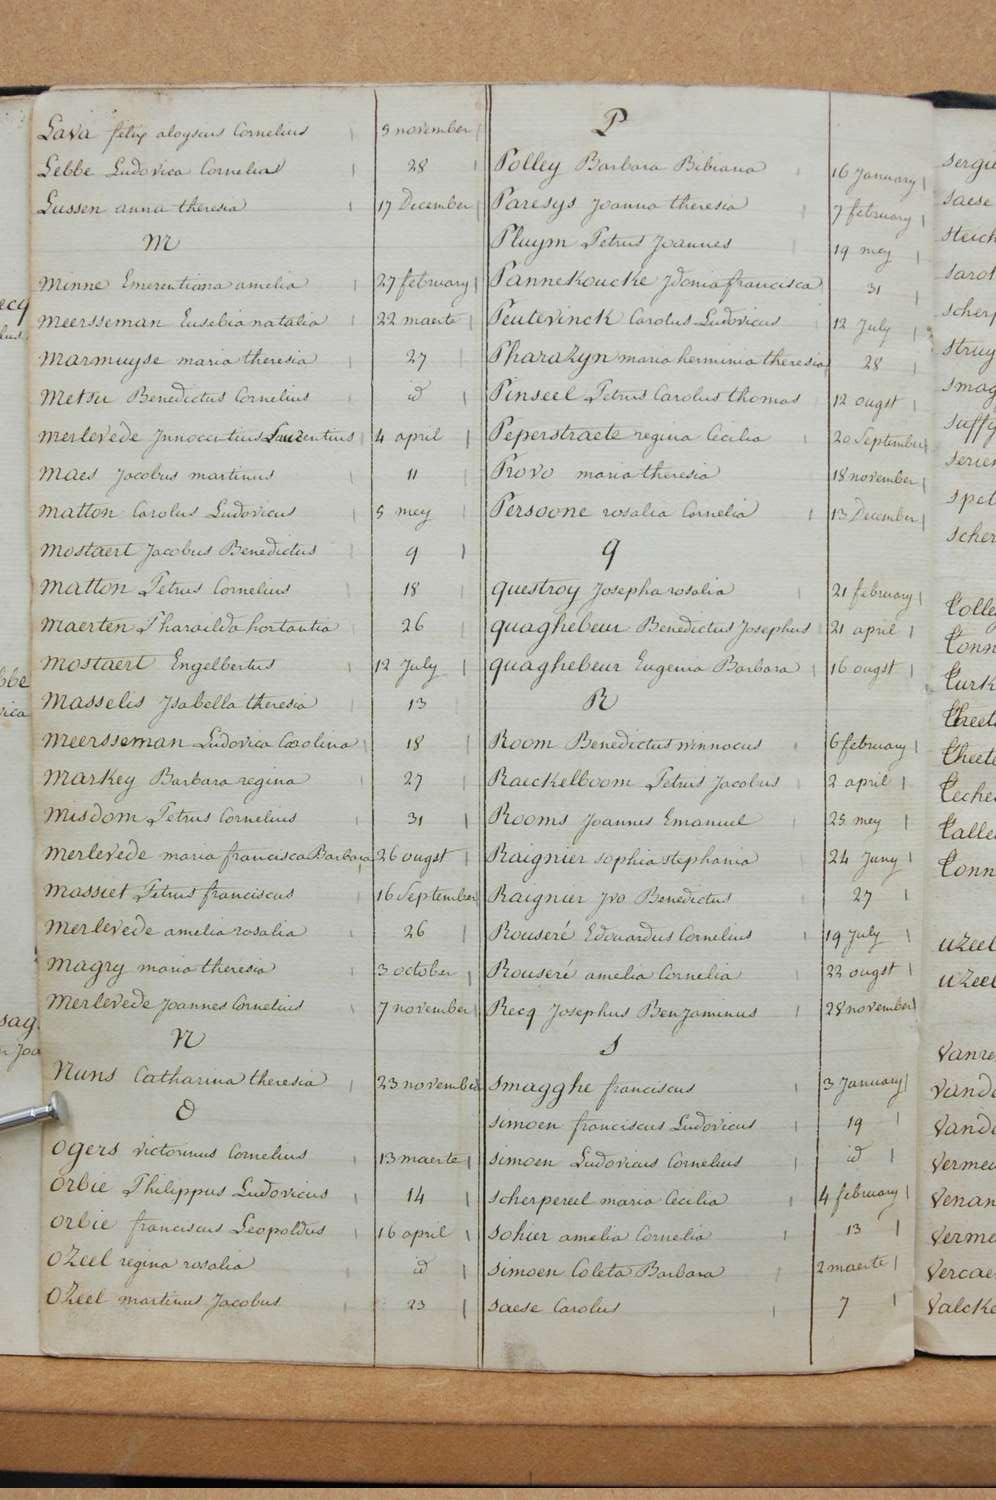 Lava felix aloysius Cornelius 9 november
Lebbe Ludovica Cornelia 28
Lussen anna theresia 17 December
M
Minne Emerentiana amelia 27 february
Meersseman Eusebia natalia 22 maerte
Marmuyse maria theresia 27
Metsu Benedictus Cornelius id
Merlevede Innocentius Laurentius 4 april
Maes Jacobus martinus 11
Matton Carolus Ludovicus 5 mey
Mostaert Jacobus Benedictus 9
Matton Petrus Cornelius 18
Maerten Pharaildo hortantia 26
Mostaert Engelbertus 12 July
Masselis Isabella theresia 13
Meersseman Ludovica Carolina 18
Markey Barbara regina 27
Misdom Petrus Cornelius 31
Merlevede maria francisca Barbara 26 ougst
Massiet Petrus franciscus 16 September
Merlevede amelia rosalia 26
Magry maria theresia 3 october
Merlevede Joannes Cornelius 7 november
N
Nuns Catharina theresia 23 november
O
Ogers victorinus Cornelius 13 maerte
Orbie Philippus Ludovicus 14
Orbie franciscus Leopoldus 16 april
Ozeel regina rosalia id
Ozeel martinus Jacobus 23
P
Polley Barbara Bibiana 16 January
Paresys Joanna theresia 7 february
Pluym Petrus Joannes 19 mey
Pannekoucke Idonia francisca 31
Peutevinck Carolus Ludovicus 12 July
Pharazyn maria herminia theresia 28
Pinseel Petrus Carolus thomas 12 ougst
Peperstraete regina Cecilia 20 September
Provo maria theresia 18 november
Persoone rosalia Cornelia 13 December
q
questroy Josepha rosalia 21 february
quaghebeur Benedictus Josephus 21 april
quaghebeur Eugenia Barbara 16 ougst
R
Room Benedictus winnocus 6 february
Raeckelboom Petrus Jacobus 2 april
Rooms Joannes Emanuel 25 mey
Raignier sophia stephania 24 Juny
Raignier Ivo Benedictus 27
Rouseré Edouardus Cornelius 19 July
Rouseré amelia Cornelia 22 ougst
Recq Josephus Benjaminus 28 november
S
Smagghe franciscus 3 January
simoen franciscus Ludovicus 19
simoen Ludovicus Cornelius id
scherpereel maria Cecilia 4 february
sohier amelia Cornelia 13
simoen Coleta Barbara 2 maerte
saese Carolus 7